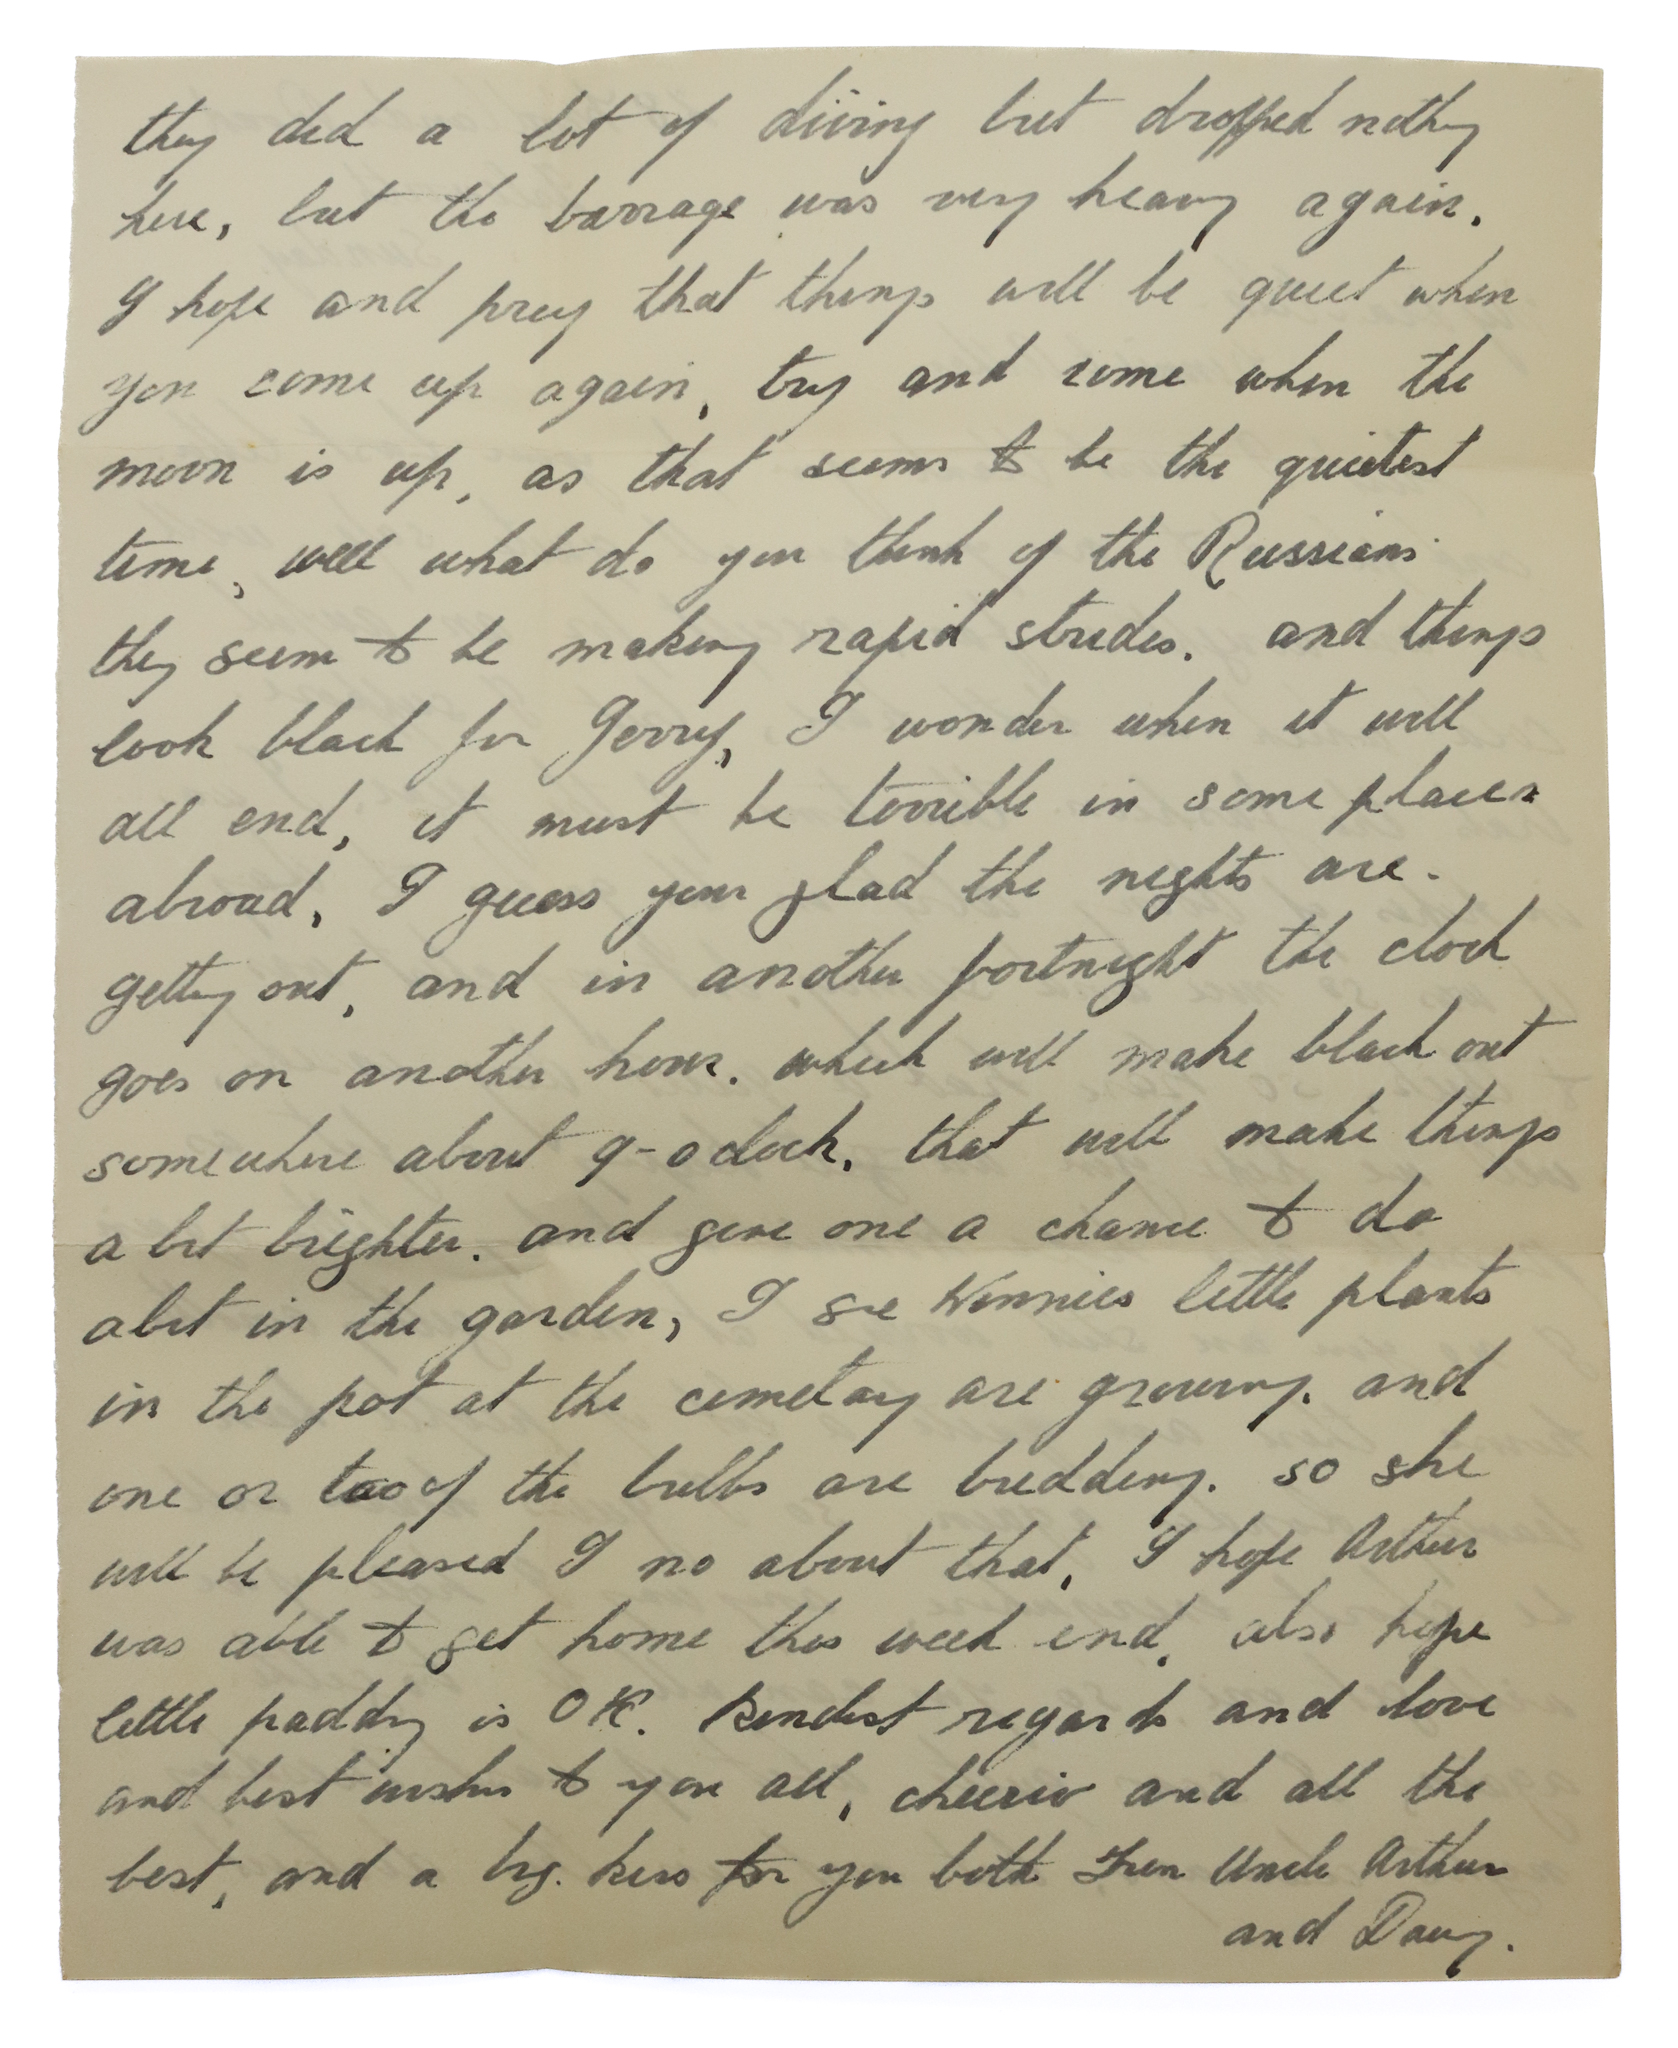 they did a lot of diving but dropped nothing
here, but the barrage was very heavy again.
I hope and pray that things will be quiet when
you come up again, try and come when the
moon is up, as that seems to be the quietest
time, well what do you think of the Russians
they seem to be making rapid strides. and things
look black for Jerry, I wonder when it will
all end, it must be terrible in some places
abroad, I guess your glad the nights are.
getting out, and in another fortnight the clock
goes on another hour. which will make black out
somewhere about 9-oclock, that will make things
a bit brighter. and give one a chance to do
abit in the garden, I see Winnies little plants
in the pot at the cemetary are growing. and
one or two of the bulbs are budding. so she
will be pleased I no about that, I hope Arthur
was able to get home this week end, also hope
little paddy is OK. Kindest regards and love
and best wishes to you all, cheerio and all the
best, and a big. kiss for you both from Uncle Arthur
and